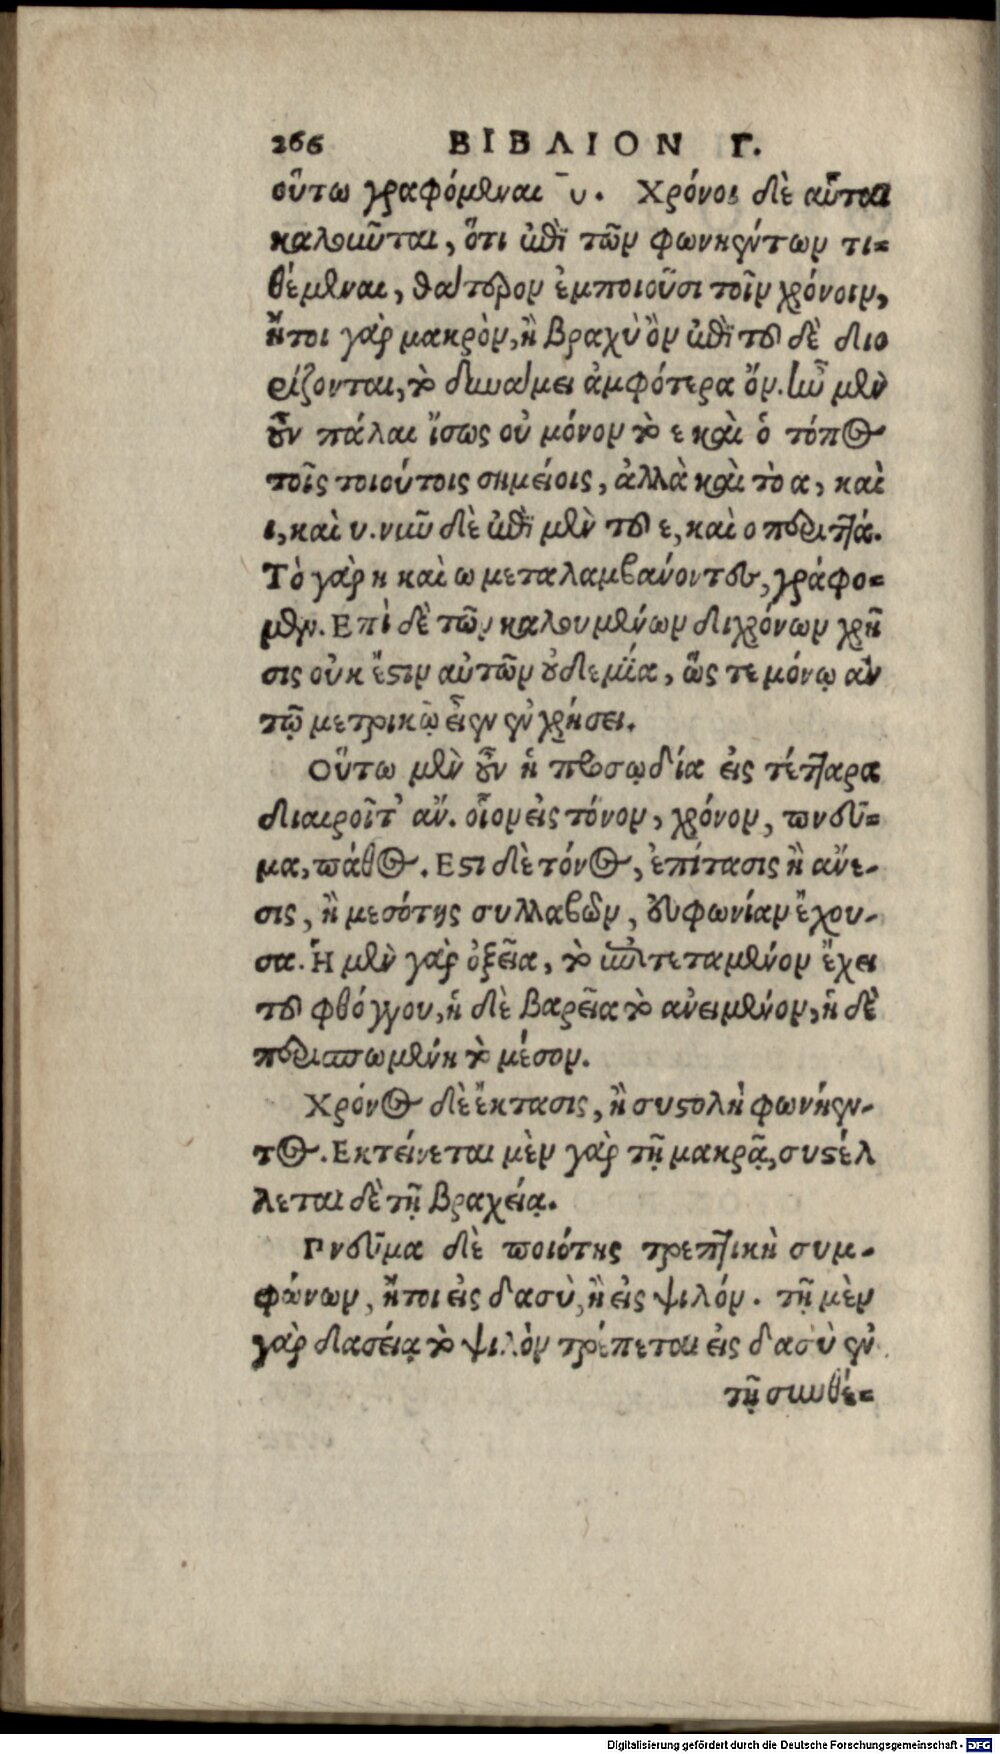 266 ΒΙΒΛΙΟΝ Γ.
οὕτω γραφόμεναι ¯ υ. Χρόνοι δὲ αὗται
καλοῦνται, ὅτι ἐπὶ τῶν φωνηέντων τι=
θέμεναι, θάτερον ἐμποιοῦσι τοῖν χρόνοιν,
ἤτοι γὰρ μακρὸν, ἢ βραχὺ ὂν ἐπὶ τοῦδε διο
ρίζονται, τὸ δυνάμει ἀμφότερα ὄν. ἦν μὲν
οὖν πάλαι ἴσως οὐ μόνον τὸ ε καὶ ὁ τόπος
τοῖς τοιούτοις σημείοις, ἀλλὰ καὶ τὸ α, καὶ
ι, καὶ υ. νῦν δὲ ἐπὶ μὲν τοῦ ε, καὶ ο περιττά.
Τὸ γὰρ η καὶ ω μεταλαμβάνοντες, γράφο=
μεν. Επὶ δὲ τῶν καλουμένων διχρόνων χρῆ
σις οὐκ ἔστιν αὐτῶν οὐδεμία, ὥς τε μόνῳ ἂν
τῷ μετρικῷ εἶεν ἐν χρήσει.
Οὕτω μὲν οὖν ἡ προσῳδία εἰς τέτταρα
διαιροῖτ' ἄν. οἷον εἰς τόνον, χρόνον, πνεῦ=
μα, πάθος. Εστι δὲ τόνος, ἐπίτασις ἢ ἄνε-
σις, ἢ μεσότης συλλαβῶν, εὐφωνίαν ἔχου-
σα. Ἡ μὲν γὰρ ὀξεῖα, τὸ ἐπιτεταμένον ἔχει
τοῦ φθόγγου, ἡ δὲ βαρεῖα τὸ ἀνειμένον, ἡ δὲ
περισπωμένη τὸ μέσον.
Χρόνος δὲ ἔκτασις, ἢ συστολὴ φωνήεν-
τος. Εκτείνεται μὲν γὰρ τῇ μακρᾷ, συστέλ
λεται δὲ τῇ βραχείᾳ.
Πνεῦμα δὲ ποιότης τρεπτικὴ συμ-
φώνων, ἤτοι εἰς δασὺ, ἢ εἰς ψιλόν. τῇ μὲν
γὰρ δασείᾳ τὸ ψιλὸν τρέπεται εἰς δασὺ ἐν
τῇ συνθέ=
Digitalisierung gefördert durch die Deutsche Forschungsgemeinschaft - DFG